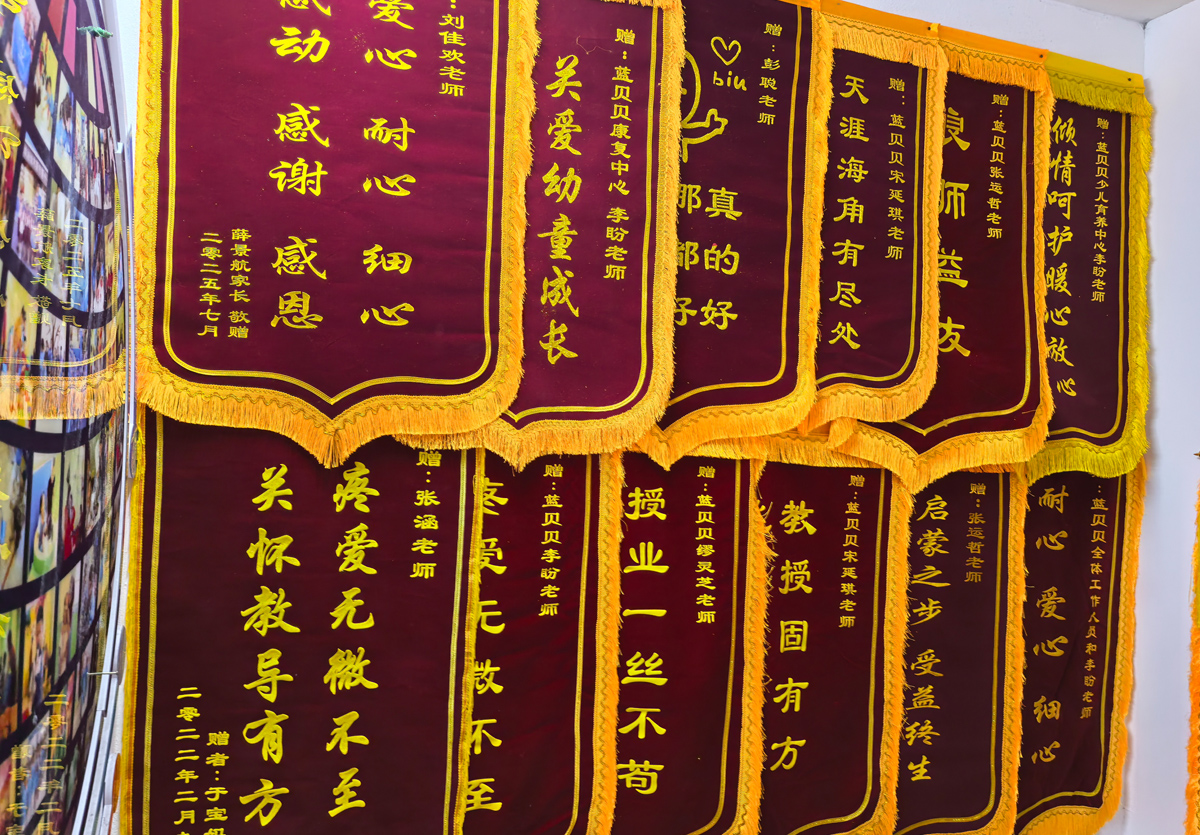 刘佳欢老师
爱心 耐心 细心
感动 感谢 感恩
薛景航家长 敬赠
二零二五年七月
赠：蓝贝贝康复中心 李盼老师
关爱幼童成长
赠：彭聪老师
biu
真的好
那都好
赠：蓝贝贝宋延琪老师
天涯海角有尽处
赠：蓝贝贝张运哲老师
良师益友
赠：蓝贝贝少儿育养中心李盼老师
倾情呵护暖心放心
赠：张涵老师
疼爱无微不至
关怀教导有方
赠者：于宝
二零二二年二月
赠：蓝贝贝李盼老师
疼爱无微不至
赠：蓝贝贝缪灵芝老师
授业一丝不苟
赠：蓝贝贝宋延琪老师
教授固有方
赠：张运哲老师
启蒙之步 受益终生
：蓝贝贝全体工作人员和李盼老师
耐心 爱心 细心